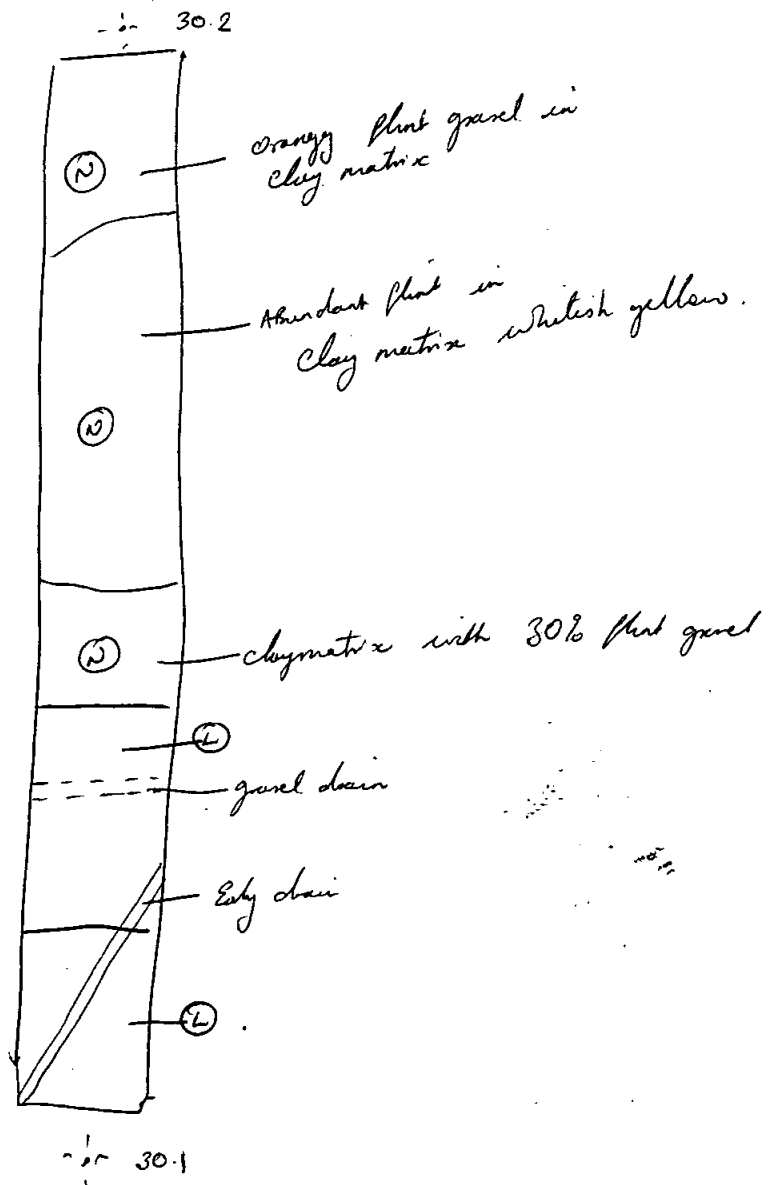 30.2
Orangy flint gravel in
clay matrix
N
Abundant flint in
clay matrix whitish yellow.
N
N
claymatrix with 30% flint gravel
L
gravel drain
Early drain
L
30.1